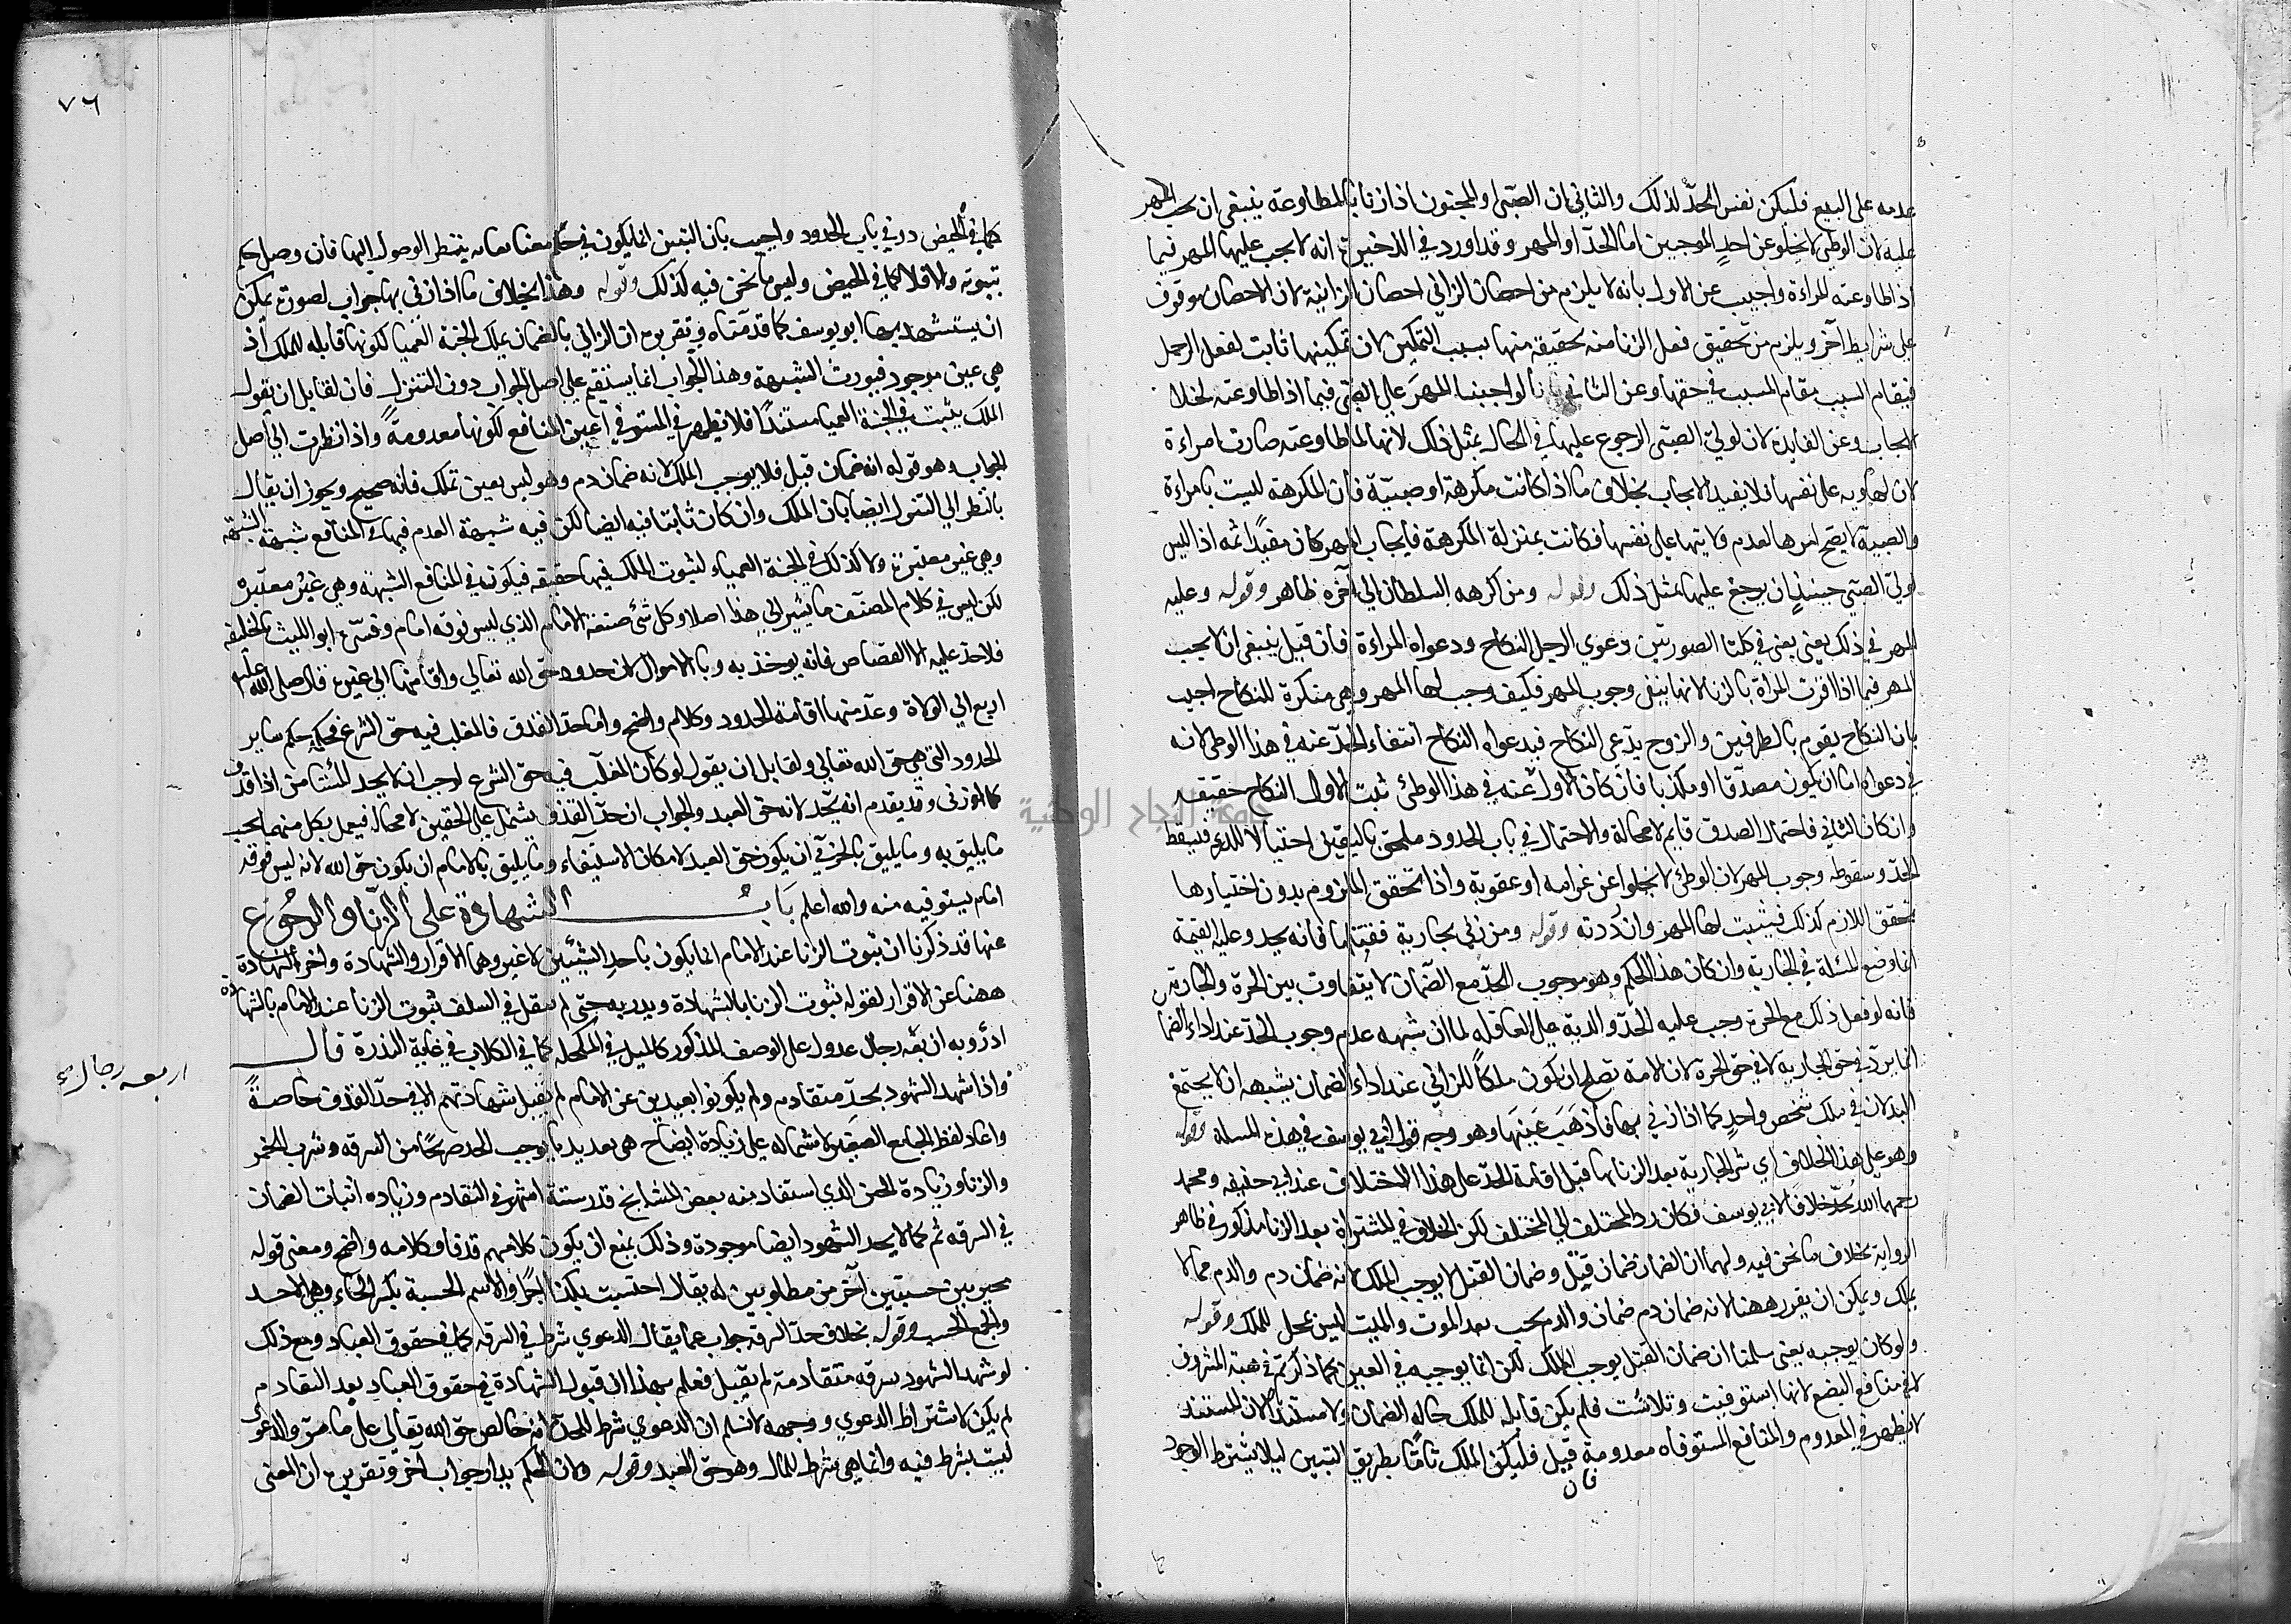 عدمه على البيع فليكن نفس الحدّ لذلك والثاني ان الصّبي او المجنون اذا زنا بالمطاوعة ينبغي ان يجب المهر
عليه لان الوطي لا يخلو عن احدٍ الموجبين اما الحدّ او المهر وقد اورد في الذخيرة انه لا يجب عليها المهر فيما
اذا طاوعته المراءة واجيب عن الاول بانه لا يلزم من احصان الزاني احصان الزانية لان الاحصان موقوف
على شرايط آخر ويلزم من تحقيق فعل الزنا منه تحقيقه منها بسبب التمكين لان تمكينها ثابت لفعل الرجل
فيقام السبب مقام المسبب في حقها وعن الثاني بانا لو اجبنا المهرَ على الصّبي فيما اذا طاوعته لخلا
الايجاب عن الفايدة لان لولي الصبّي الرجوع عليها في الحال بمثل ذلك لانها لما طاوعته صارت امراءة
لان لها ولاية على نفسها فلا يفيد الايجاب بخلاف ما اذا كانت مكرهة او صبيّة فان المكرهة ليست بامراءة
والصبيّة لا يصّح امرها لعدم ولايتها على نفسها فكانت بمنزلة المكرهة فايجاب المهر كان مفيدًا ثمه اذ ليس
لولي الصبّي حينئذٍ ان يرجع عليها بمثل ذلك وقوله ومن اكرهه السلطان الي آخره ظاهر وقوله وعليه
المهر في ذلك يعني يعني في كلتا الصورتين دعوي الرجل النكاح ودعواه المراءة فان قيل ينبغي ان لا يجب
المهر فيما اذا اقرت المرأة بالزنا لانها ينفي وجوب المهر فكيف وجب لها المهر وهي منكرة للنكاح اجيب
بان النكاح يقوم بالطرفين والزوج يدّعي النكاح فبدعواه النكاح انتفاء الحدّ عنه في هذا الوطئ لانه
في دعواه اما ان يكون مصدّقا او مكذبا فان كان الاول عنه في هذا الوطئ ثبت الاول النكاح حقيقه
وان كان الثاني فاحتمال الصدق قايم لا محالة والاحتمال في باب الحدود ملحق باليقين احتيالا للدرء فيسقط
الحدّ وسقوطه وجوب المهر لان الوطئ لا يخلوا عن غرامه او عقوبة واذا تحقق الملزوم بدون اختيارها
تحقق اللازم كذلك فيثبت لها المهر وان ردّته وقوله ومن زني بجارية فقتلها فانه يحد وعليه القيمة
انما وضع المسئلة في الجارية وان كان هذا الحكم وهو وجوب الحدّ مع الضّمان لا يتفاوت بين الحرة والجارية
فانه لو فعل ذلك مع الحرة وجب عليه الحدّ والدية على العاقله لما ان شبهه عدم وجوب الحدّ عند اداء الضما
انما يرد في حق الجارية لا في حق الحرة لان الامة تصلح ان يكون ملكاً للزاني عند اداء الضمان بشبهه ان لا يجتمع
البدلان في ملك شخص واحدٍ كما اذا زني بها فاذهَبَ عَينَها وهو وجه قول ابي يوسف في هذه المسله وقوله
وهو على هذا الخلاف اي شرا الجارية بعد الزنا بها قبل اقامة الحدّ على هذا الاختلاف عند ابي حنيفه ومحمد
رحمهما الله يحدّ خلافًا لابي يوسف فكان رد المختلف الي المختلف لكن الخلاف في المشتراة بعد الزنا مذكور في ظاهر
الرواية بخلاف ما نحن فيه ولهما ان الضمان ضمان قتل وضمان القتل لا يوجب الملك لانه ضمان دم والدم مما لا
يملك ويمكن ان يقرر ههنا لانه ضمان دم ضمان والدم يجب بعد الموت والميت ليس بمحل للملك وقوله
ولو كان يوجبه يعني سلمنا ان ضمان القتل يوجب الملك لكن انما يوجبه في العين كما ذكرتم في هبة المسروق
لا في منافع البضع لانها استوفيت وتلاشت فلم يكن قابله للملك حاله الضمان ولا مستندا لان المستند
لا يظهر في المعدوم والمنافع المستوفاه معدومة فان قيل فليكن الملك ثابتًا بطريق التبين ليلا يشترط الوجود
٧٦
كما في الحيض در في باب الحدود واجيب بان التبين انما يكون في ينتظر الوصول اليها فان وصل حكم
بثبوته والا فلا كما في الحيض وليس ما نحن فيه كذلك وقوله وهذا بخلاف ما اذا زني بها جواب لصورة يمكن
ان يستشهد بها ابو يوسف كما قدمناه وتقريره ان الزاني بالضمان يملك الجثة العميا لكونها قابله للملك اذ
هي عين موجود فيورث الشبهة وهذا الجواب انما يستقيم على اصل الجواب دون التنزل فان لقايل ان يقول
الملك يثبت في الجثة العميا مستندًا فلا يظهر في المستوفي اعين المنافع لكونها معدومةً واذا نظرت الي اصل
الجواب وهو قوله انه ضمان قبل فلا يوجب الملك لانه ضمان دم وهو ليس بعين تملك فانه صحيح ويجوز ان يقال
بالنظر الي التنزل ايضا بان الملك وان كان ثابتا فيه ايضا لكن فيه شبهة العدم فيها في المنافع شبهة الشبهة
وهي غير معتبرة ولا كذلك في الجثة العمياء لثبوت الملك فيها حقيقه فيكون في المنافع الشبهة وهي غير معتبرة
لكن ليس في كلام المصنّف ما يشير الي هذا اصلا وكل شئ صنعه الامام الذي ليس فوقه امام وفسّره ابو الليث بالخليفه
فلا حدّ عليه الا القصاص فانه يوخذ به وبالاموال لان حدود حق الله تعالي واقامتها الي غيره قال صلى الله عليه
اربع الي الولاة وعدّ منها اقامة الحدود وكلام واضح واما حدّ القذف فالمغلب فيه حق الشرع فحكمه حكم ساير
الحدود التي هي حق الله تعالي ولقايل ان يقول لو كان المغلّب فيه حق الشرع لوجب ان لا يحد المستامن اذا قذف
كما لو زني وقد يقدم انه يحّد لانه حق العبد والجواب ان حدّ القذف يشتمل على الحقين لا محاله فيعمل بكل منهما بحسب
ما يليق به وما يليق بالحربي ان يكون حق العبد لامكان الاستيفاء وما يليق بالامام ان يكون حق الله لانه ليس فوقه
امام يستوفيه منه والله اعلم بَابُ الشهادة على الزنا والرجُوع
عنها قد ذكرنا ان ثبوت الزنا عند الامام انما يكون باحدِ الشيئين لا غير وهما الاقرار والشهادة واخر الشهادة
ههنا عن الاقرار لقوله ثبوت الزنا بالشهادة وندرته حتى لم ينقل في السلف ثبوت الزنا عند الامام بالشهادة
اذ رؤية اربعه رجال عدول على الوصف المذكور كالميل في المكحله كما في الكلاب في غاية الندرة قال
اربعه رجال
واذا شهد الشهود بحدّ متقادم ولم يكونوا بعيدين عن الامام لم تقبل شهادتهم الا في حدّ القذف خاصةً
واعاد لفظ الجامع الصغير لاشتماله على زيادة ايضاح هي تعديد ما يوجب الحد صريحًا من السرقه وشرب الخمر
والزنا وزيادة الحين الذي استفاد منه بعض المشايخ قدر ستة اشهر في التقادم وزياده اثبات الضمان
في السرقه ثم كما لا يحد الشهود ايضا موجودة وذلك يمنع ان يكون كلامهم قذفا وكلامه واضح ومعني قوله
مخير بين حسبتين آخر من مطلوبين له يقال احتسبت بكذا اجرًا والاسم الحسبة بكسر الحاء وهي الاجر
والجمع الحسب وقوله بخلاف حدّ السرقه جواب عما يقال الدعوي شرط في السرقه كما في حقوق العباد ومع ذلك
لو شهد الشهود بسرقه متقادمة لم يقبل فعلم بهذا ان قبول الشهادة في حقوق العباد بعد التقادم
لم يكن لاشتراط الدعوي ووجهه لا نسلم ان الدعوي شرط للحدّ لانه خالص حق الله تعالي على ما مر والدعوي
ليست بشرط فيه وانما هي شرط للمال وهو حق العبد وقوله ولان الحكم يدار جواب آخر وتقريره ان المعني